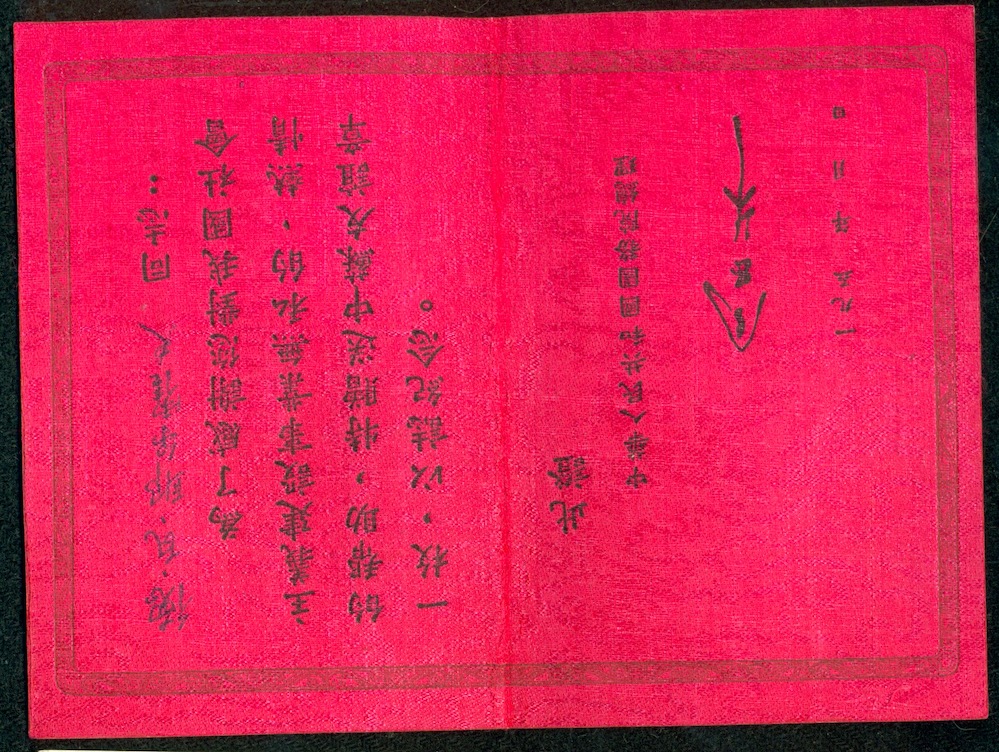 德.瓦. 同志：
為了感謝您對我國社會
主義建設事業無私的、熱情
的帮助，特贈送中蘇友誼章
一枚，以誌紀念。
此證
中華人民共和國國務院總理
周恩来
一九五 年 月 日